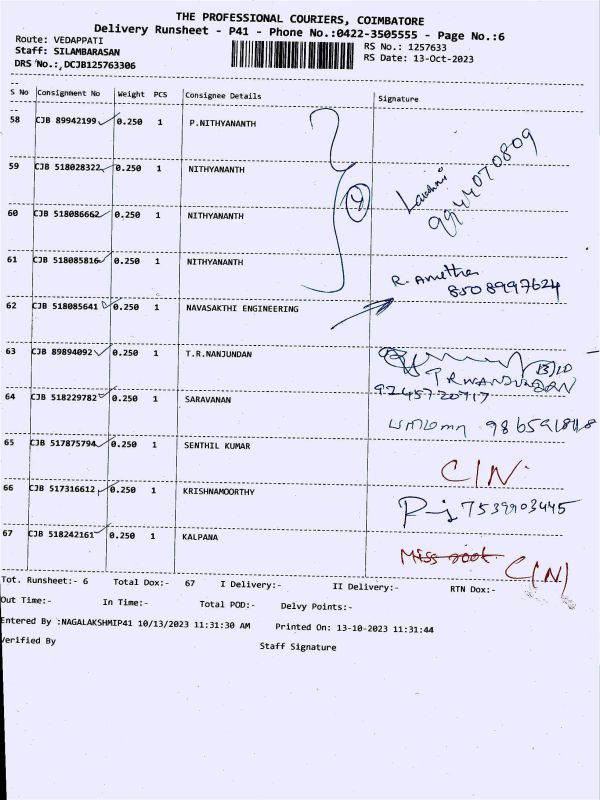 THE PROFESSIONAL COURIERS, COIMBATORE
Delivery Runsheet - P41 - Phone No.:0422-3505555 - Page No.:6
Route: VEDAPPATI
RS No.: 1257633
Staff: SILAMBARASAN
RS Date: 13-Oct-2023
DRS No.:,DCJB125763306
S No Consignment No Weight PCS Consignee Details Signature
58 CJB 89942199 0.250 1 P.NITHYANANTH
59 CJB 518028322 0.250 1 NITHYANANTH
9944070809
60 CJB 518086662 0.250 1 NITHYANANTH
4
61 CJB 518085816 0.250 1 NITHYANANTH
R. Ametha
8508997624
62 CJB 518085641 0.250 1 NAVASAKTHI ENGINEERING
63 CJB 89894092 0.250 1 T.R.NANJUNDAN
13/10
T R NANJUNDAN
9245720717
64 CJB 518229782 0.250 1 SARAVANAN
65 CJB 517875794 0.250 1 SENTHIL KUMAR
C/N.
66 CJB 517316612 0.250 1 KRISHNAMOORTHY
7539903445
67 CJB 518242161 0.250 1 KALPANA
Miss root C(N)
Tot. Runsheet:- 6 Total Dox:- 67 I Delivery:- II Delivery:- RTN Dox:-
Out Time:- In Time:- Total POD:- Delvy Points:-
Entered By :NAGALAKSHMIP41 10/13/2023 11:31:30 AM Printed On: 13-10-2023 11:31:44
Verified By
Staff Signature